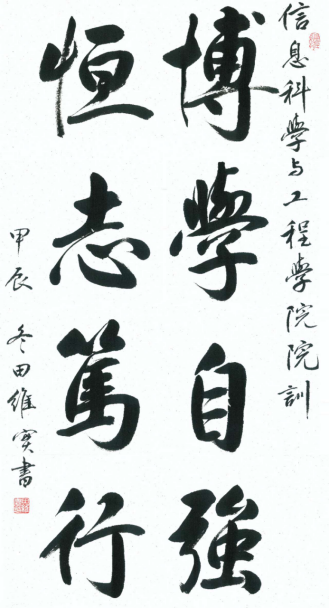 信息科學与工程學院院訓
博學自強
恒志篤行
甲辰冬田維实書